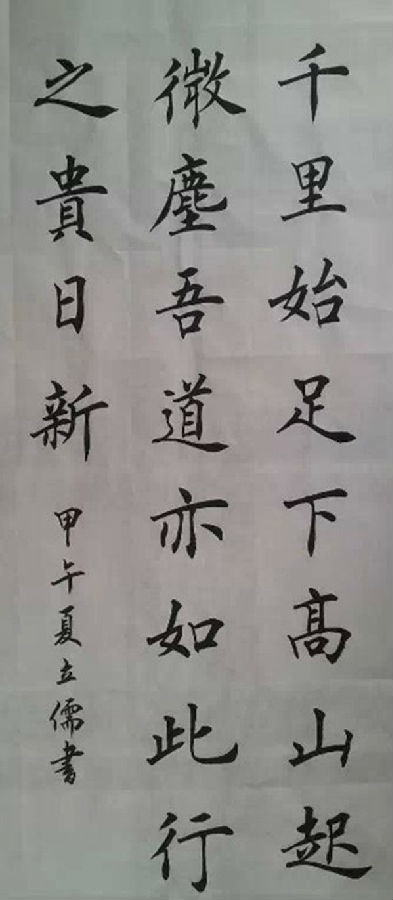 千里始足下高山起
微塵吾道亦如此行
之貴日新
甲午夏立儒書